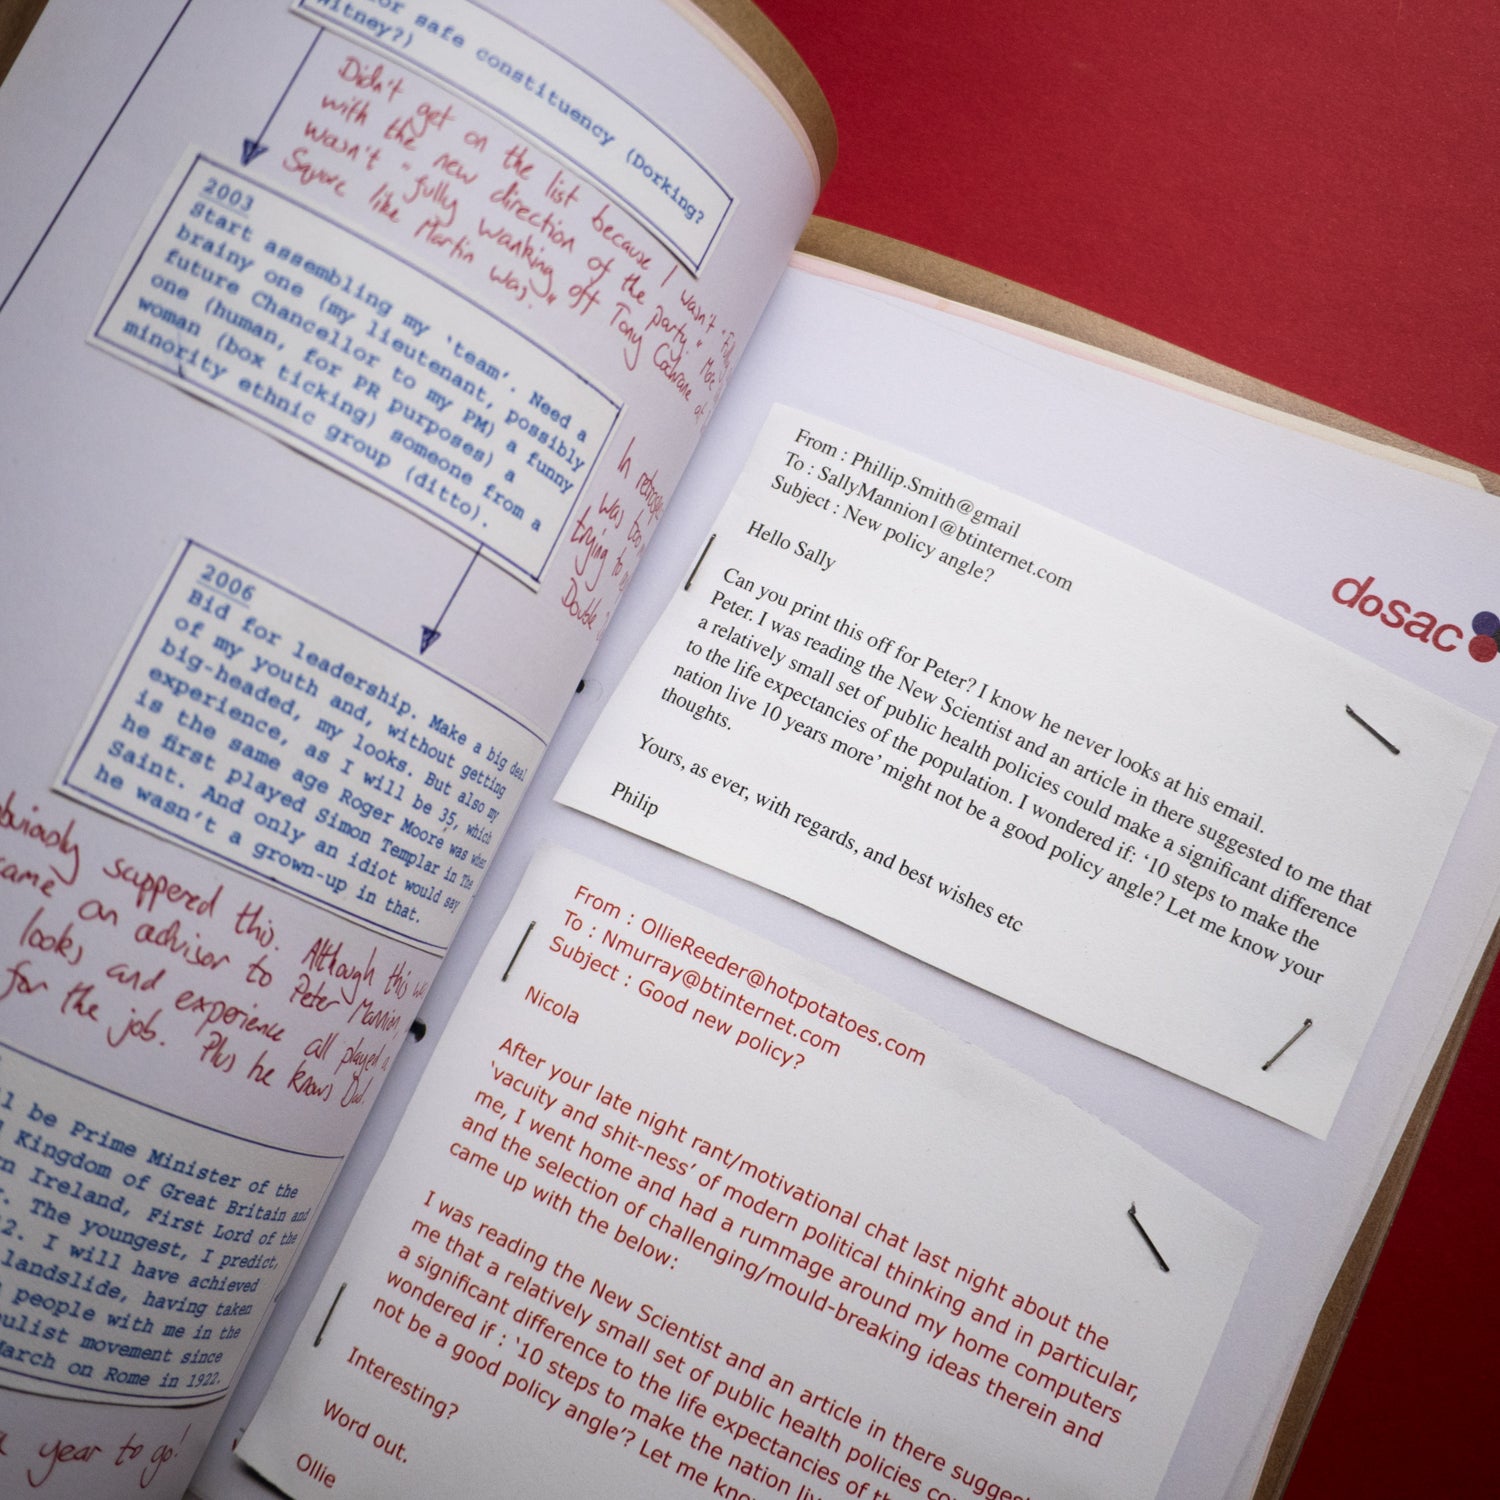 for safe constituency (Dorking?
Witney?)
Didn't get on the list because I wasn't "fully
with the new direction of the party." More
wasn't "fully wanking off Tony Cochrane at
Square like Martin was."
2003
Start assembling my 'team'. Need a
brainy one (my lieutenant, possibly
future Chancellor to my PM) a funny
one (human, for PR purposes) a
woman (box ticking) someone from a
minority ethnic group (ditto).
In
was too
trying to
Double
2006
Bid for leadership. Make a big deal
of my youth and, without getting
big-headed, my looks. But also my
experience, as I will be 35, which
is the same age Roger Moore was when
he first played Simon Templar in The
Saint. And only an idiot would say
he wasn't a grown-up in that.
obviously scuppered this. Although this
came an advisor to Peter Mannion,
looks and experience all played a
for the job. Plus he knows Dad.
be Prime Minister of the
Kingdom of Great Britain and
Ireland, First Lord of the
The youngest, I predict,
2. I will have achieved
landslide, having taken
people with me in the
movement since
March on Rome in 1922.
a year to go!
dosac
From : Phillip.Smith@gmail
To : SallyMannion1@btinternet.com
Subject : New policy angle?
Hello Sally
Can you print this off for Peter? I know he never looks at his email.
Peter. I was reading the New Scientist and an article in there suggested to me that
a relatively small set of public health policies could make a significant difference
to the life expectancies of the population. I wondered if: '10 steps to make the
nation live 10 years more' might not be a good policy angle? Let me know your
thoughts.
Yours, as ever, with regards, and best wishes etc
Philip
From : OllieReeder@hotpotatoes.com
To : Nmurray@btinternet.com
Subject : Good new policy?
Nicola
After your late night rant/motivational chat last night about the
'vacuity and shit-ness' of modern political thinking and in particular,
me, I went home and had a rummage around my home computers
and the selection of challenging/mould-breaking ideas therein and
came up with the below:
I was reading the New Scientist and an article in there
me that a relatively small set of public health policies
a significant difference to the life expectancies of
wondered if : '10 steps to make the nation
not be a good policy angle'? Let me
Interesting?
Word out.
Ollie